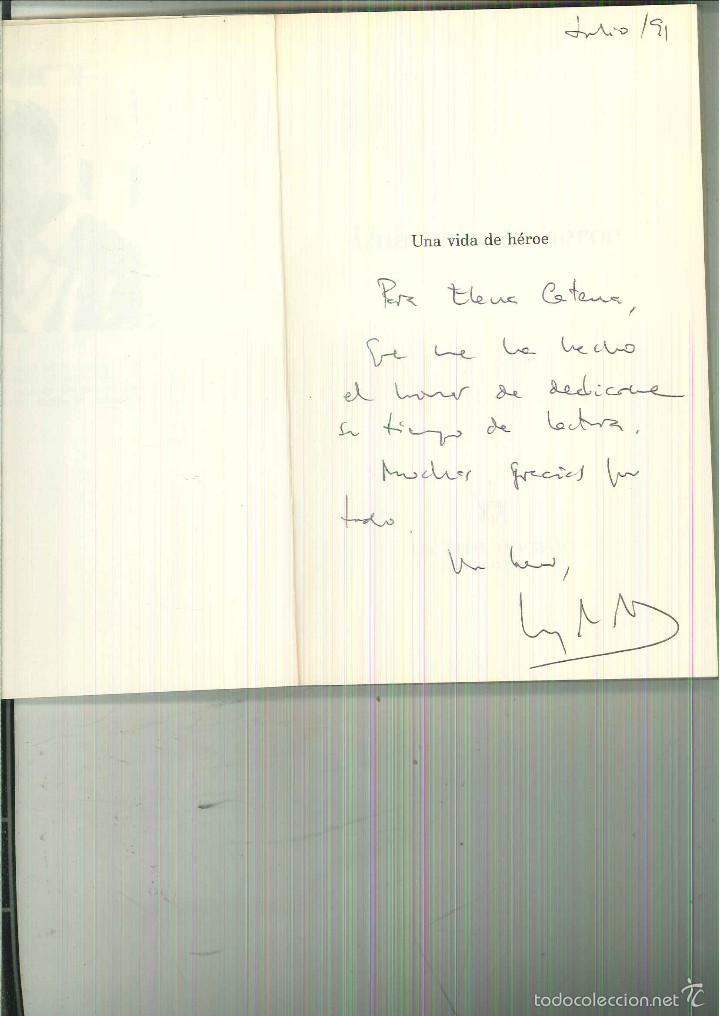 Julio / 91
Una vida de héroe
Para Elena Catena,
que me ha hecho
el honor de dedicarme
su tiempo de lectura.
Muchas gracias por
todo.
Un beso,
todocoleccion.net